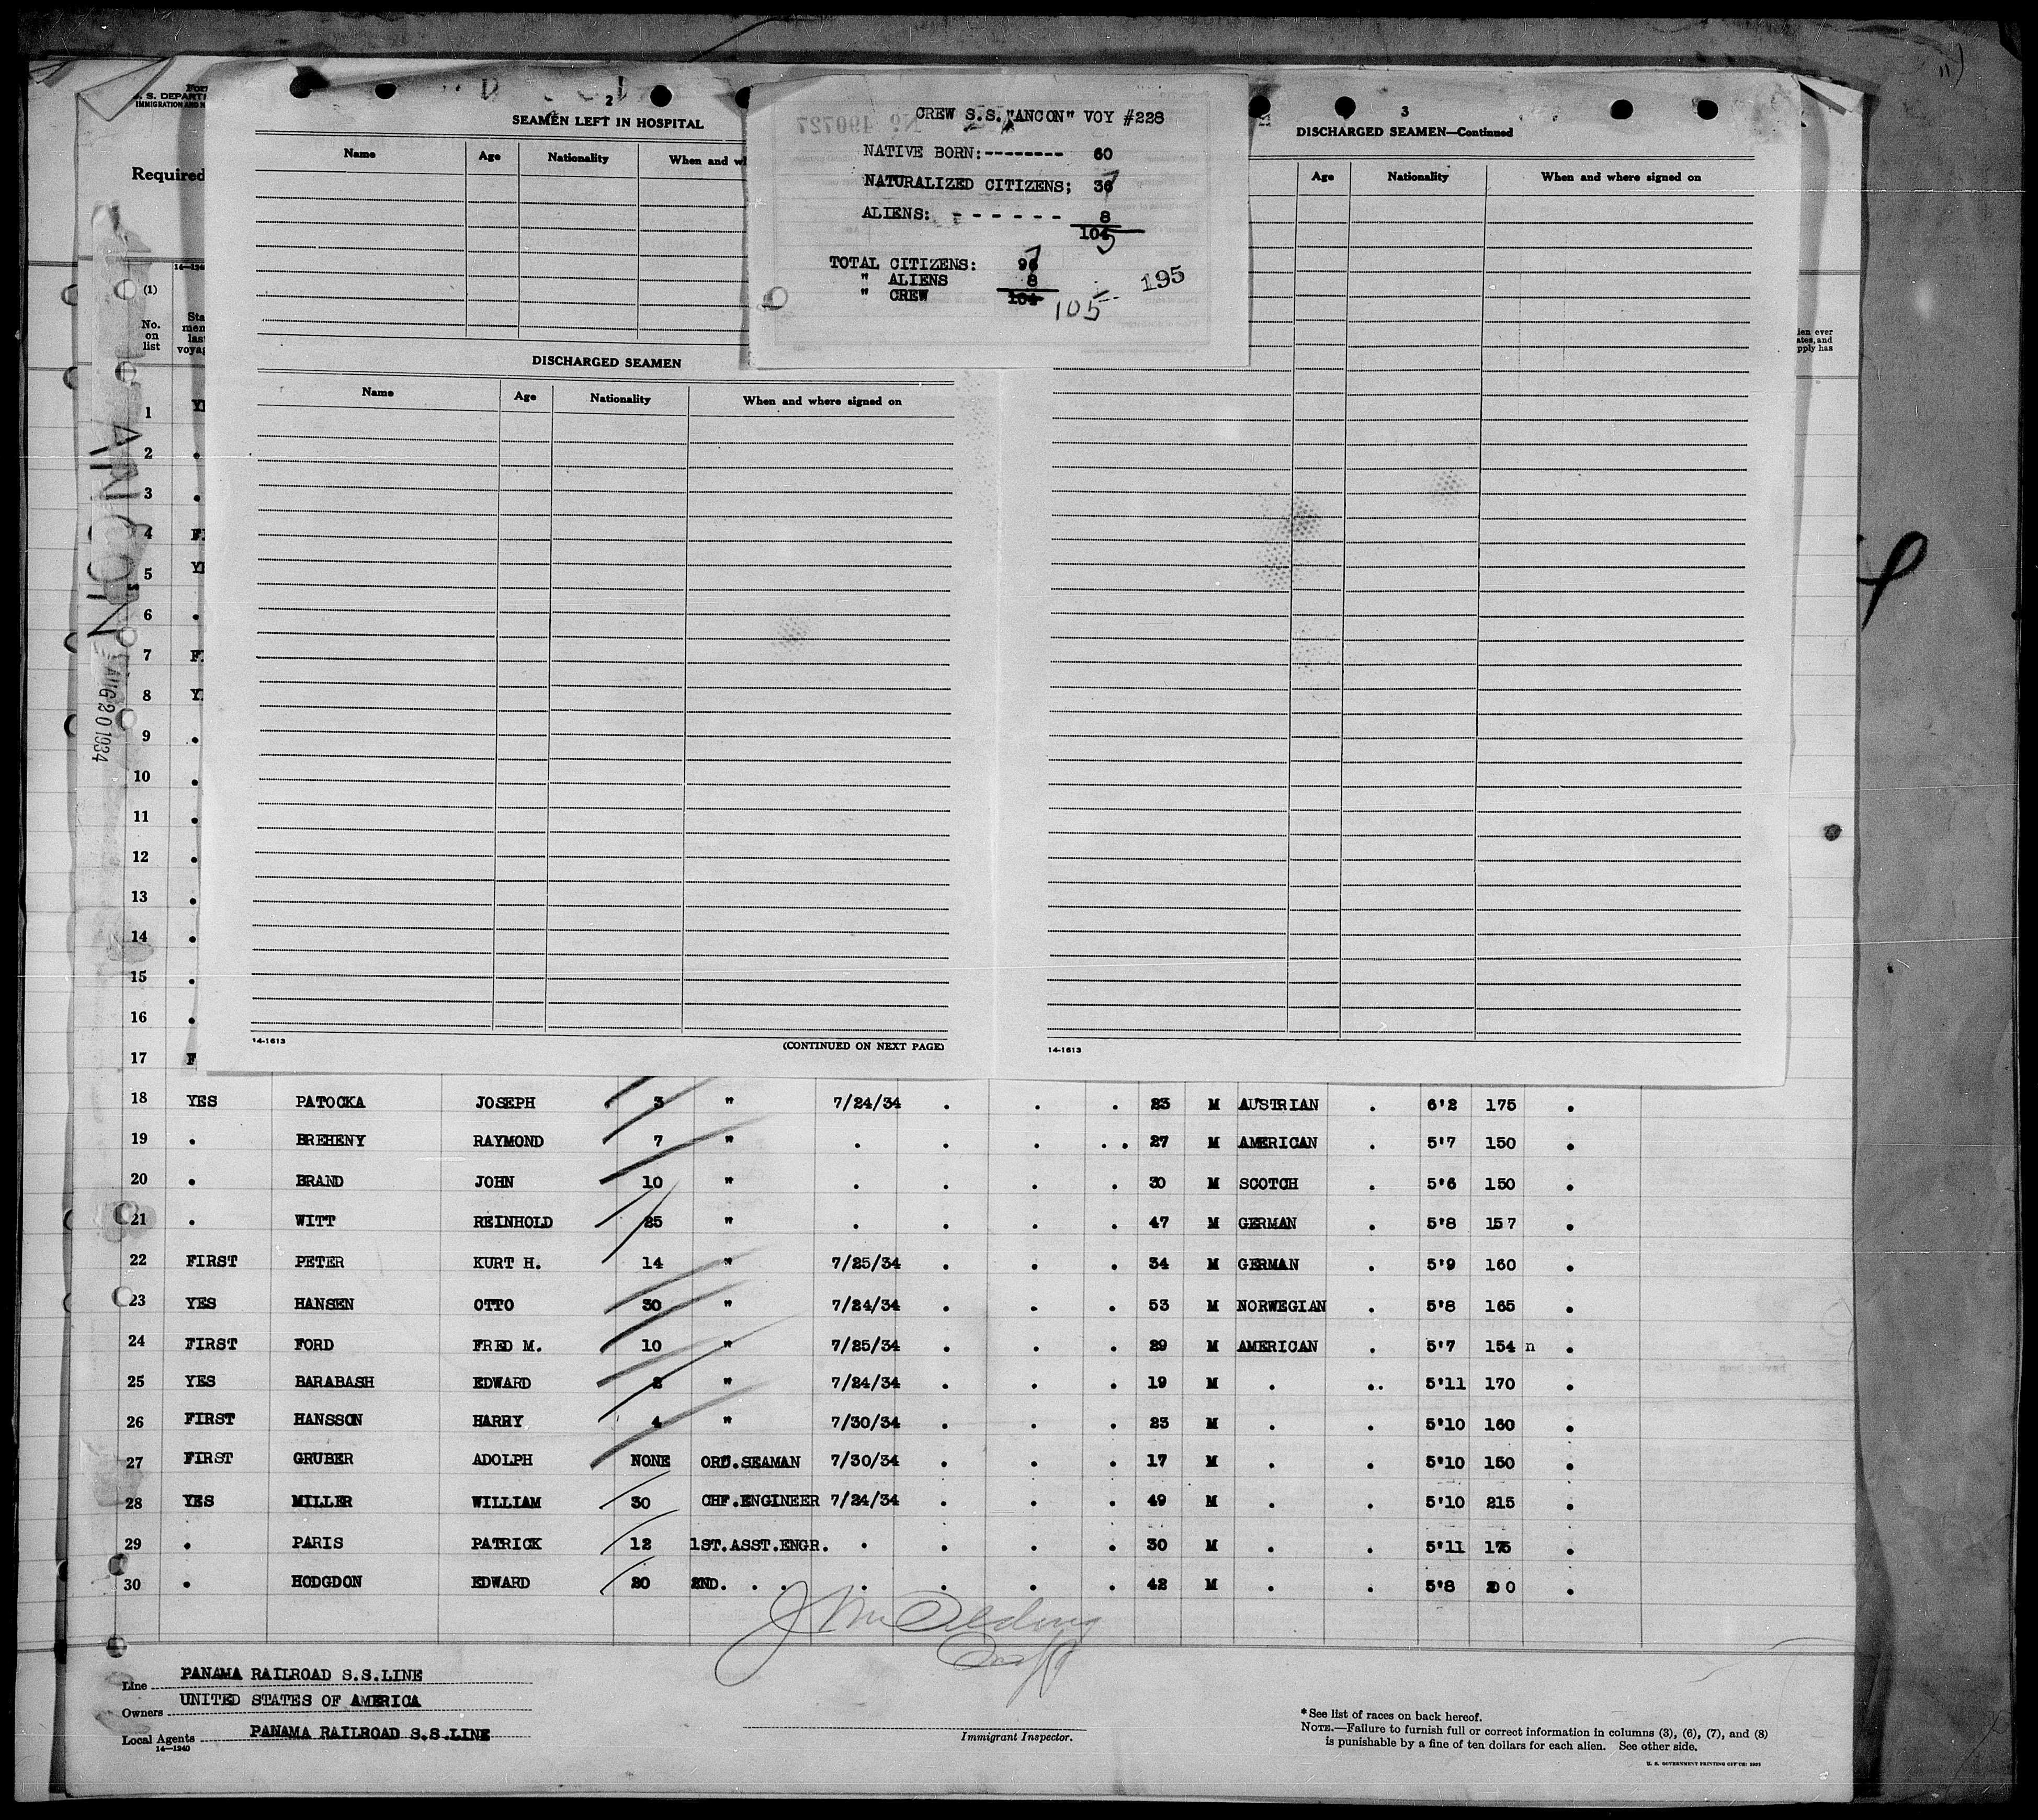 2
SEAMEN LEFT IN HOSPITAL
Name Age Nationality When and wh
DISCHARGED SEAMEN
Name Age Nationality When and where signed on
(CONTINUED ON NEXT PAGE)
14-1613
CREW S.S. "ANCON" VOY #228
NATIVE BORN:-------- 60
NATURALIZED CITIZENS; 36 7
ALIENS: - - - - - - - 8
104 5
TOTAL CITIZENS: 96 7
" ALIENS 8
" CREW 104 105
195
No. 490727
3
DISCHARGED SEAMEN—Continued
Age Nationality When and where signed on
14-1613
S. DEPART
IMMIGRATION AND N
Required
(1)
No. on list
Sta
men
las
voyag
ien ever
ates, and
pply has
ANCON
AUG 20 1934
1 YE
2 .
3 .
4 FI
5 YE
6 .
7 F
8 Y
9 .
10 .
11 .
12 .
13 .
14 .
15 .
16 .
17 F
18 YES PATOCKA JOSEPH 3 " 7/24/34 . . . 23 M AUSTRIAN . 6'2 175 .
19 . BREHENY RAYMOND 7 " . . . . . 27 M AMERICAN . 5'7 150 .
20 . BRAND JOHN 10 " . . . . 30 M SCOTCH . 5'6 150 .
21 . WITT REINHOLD 25 " . . . . 47 M GERMAN . 5'8 157 .
22 FIRST PETER KURT H. 14 " 7/25/34 . . . 34 M GERMAN . 5'9 160 .
23 YES HANSEN OTTO 30 " 7/24/34 . . . 53 M NORWEGIAN . 5'8 165 .
24 FIRST FORD FRED M. 10 " 7/25/34 . . . 29 M AMERICAN . 5'7 154 n .
25 YES BARABASH EDWARD 2 " 7/24/34 . . . 19 M . .. 5'11 170 .
26 FIRST HANSSON HARRY 4 " 7/30/34 . . . 23 M . . 5'10 160 .
27 FIRST GRUBER ADOLPH NONE ORD.SEAMAN 7/30/34 . . . 17 M . . 5'10 150 .
28 YES MILLER WILLIAM 30 CHF.ENGINEER 7/24/34 . . . 49 M . . 5'10 215 .
29 . PARIS PATRICK 12 1ST.ASST.ENGR. . . . . 30 M . . 5'11 175 .
30 . HODGDON EDWARD 20 2ND. . . . . . . 42 M . . 5'8 200 .
Line PANAMA RAILROAD S.S.LINE
Owners UNITED STATES OF AMERICA
Local Agents PANAMA RAILROAD S.S.LINE
14—1240
Immigrant Inspector.
* See list of races on back hereof.
NOTE.—Failure to furnish full or correct information in columns (3), (6), (7), and (8)
is punishable by a fine of ten dollars for each alien. See other side.